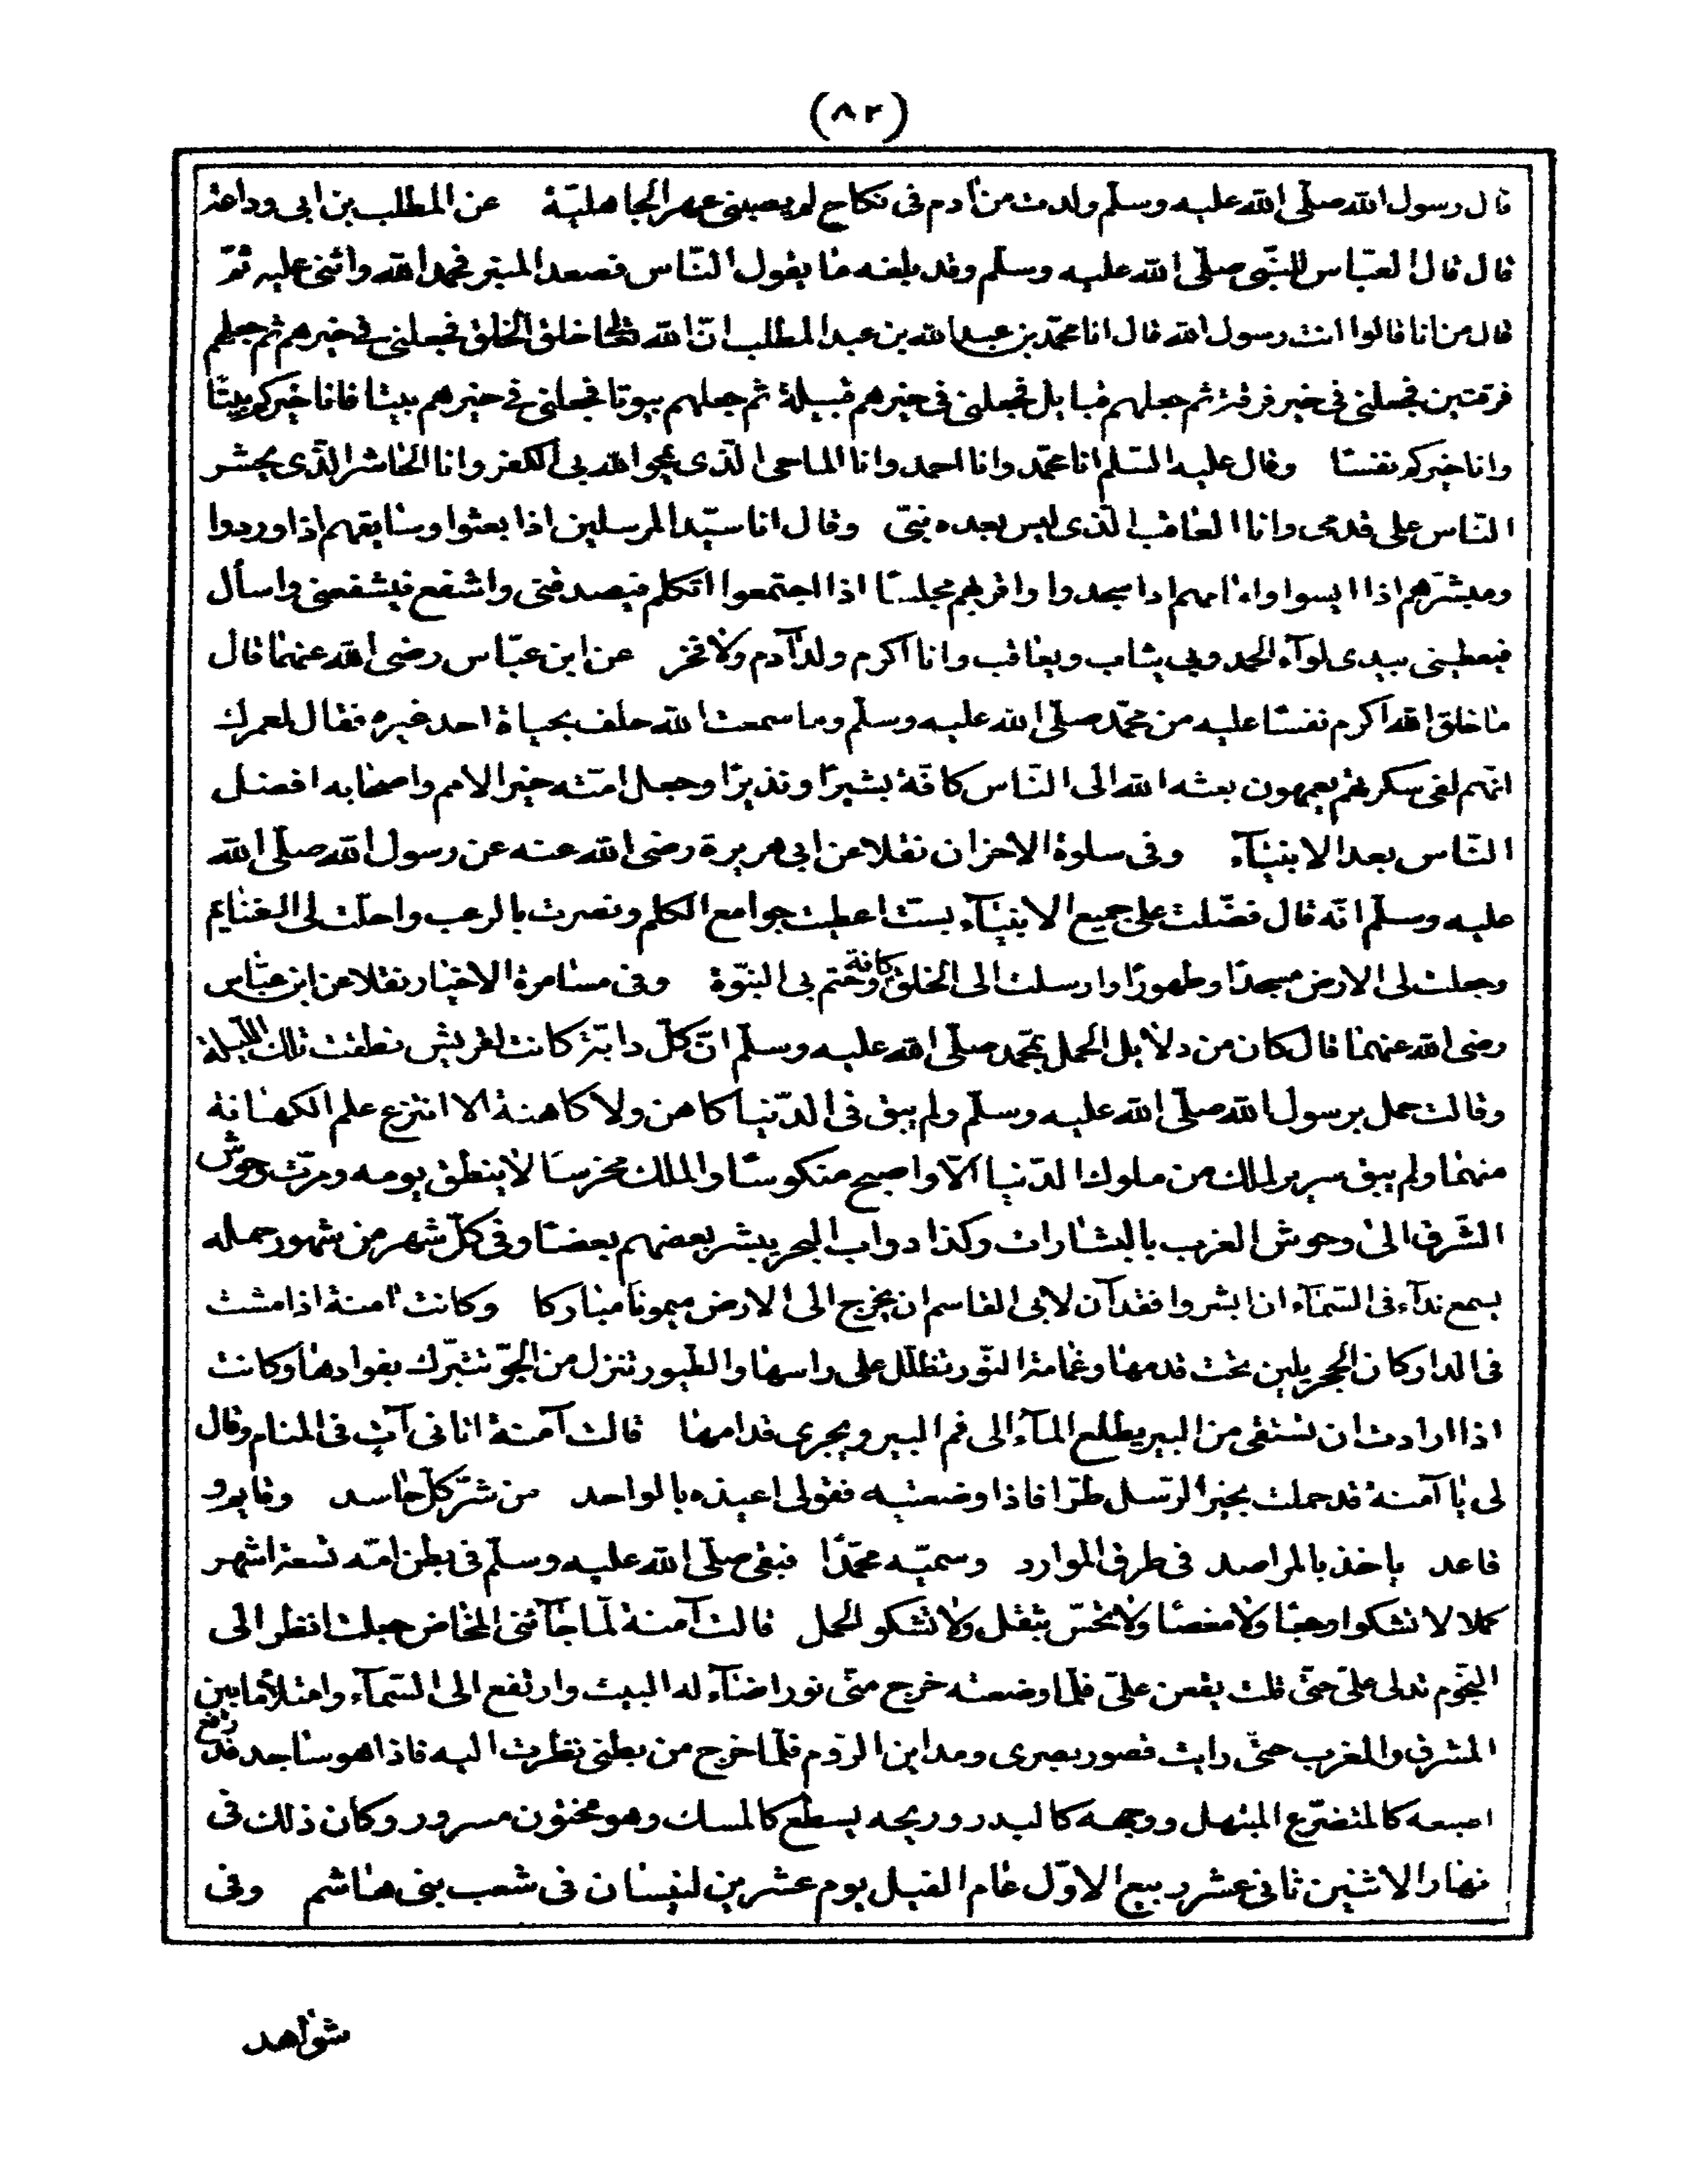 (٨٢)
قال رسول الله صلّى الله عليه وسلّم ولدت من آدم فى نكاح لم يصبنى عهر الجاهليّة عن المطلب بن ابى وداعة
قال قال العبّاس للنبّى صلّى الله عليه وسلّم وقد بلغه ما يقول النّاس فصعد المنبر فحمد الله واثنى عليه ثمّ
قال من انا قالوا انت رسول الله قال انا محمّد بن عبد الله بن عبد المطلب انّ الله تعالى خلق الخلق فجعلنى فى خيرهم ثم جعلهم
فرقتين فجعلنى فى خير فرقة ثم جعلهم قبايل فجعلنى فى خيرهم قبيلة ثم جعلهم بيوتا فجعلنى فى خيرهم بيتا فانا خيركم بيتًا
وانا خيركم نفسًا وقال عليه السّلم انا محمّد وانا احمد وانا الماحى الّذى يمحوا الله بى الكفر وانا الحاشر الذّى يحشر
النّاس على قدمى وانا العاقب الّذى ليس بعده نبىّ وقال انا سيّد المرسلين اذا بعثوا وسابقهم اذا وردوا
ومبشّرهم اذا ايسوا وامامهم اذا سجدوا واقربهم مجلسًا اذا اجتمعوا اتكلم فيصدقنى واشفع فيشفعنى واسأل
فيعطينى بيدى لوآء الحمد وبى يثاب ويعاقب وانا اكرم ولد آدم ولا فخر عن ابن عبّاس رضى الله عنهما قال
ما خلق الله اكرم نفسًا عليه من محمّد صلّى الله عليه وسلّم وما سمعت الله حلف بحياة احد غيره فقال لعمرك
انّهم لفى سكرتهم يعمهون بعثه الله الى النّاس كافّة بشيرًا ونذيرًا وجعل امّته خير الامم واصحابه افضل
النّاس بعد الانبيآء وفى سلوة الاحزان نقلا عن ابى هريرة رضى الله عنه عن رسول الله صلّى الله
عليه وسلّم انّه قال فضّلت على جميع الانبيآء بستّ اعطيت جوامع الكلم ونصرت بالرعب واحلّت لى الغنايم
وجعلت لى الارض مسجدًا وطهورًا وارسلت الى الخلق كافة وختم بى النبوّة وفى مسامرة الاخيار نقلا عن ابن عبّاس
رضى الله عنهما قال كان من دلايل الحمل بمحّمد صلّى الله عليه وسلّم انّ كلّ دابّة كانت لقريش نطقت تلك الليلة
وقالت حمل برسول الله صلّى الله عليه وسلّم ولم يبق فى الدّنيا كاهن ولا كاهنة الا انتزع علم الكهانة
منهما ولم يبق سرير لملك من ملوك الدّنيا الّا واصبح منكوسًا والملك مخرسًا لا ينطق يومه ومرّت وحوش
الشّرق الى وحوش الغرب بالبشارات وكذا دواب البحر يبشر بعضهم بعضًا وفى كلّ شهر من شهور حمله
يسمع ندآء فى السّمآء ان ابشروا فقد آن لابى القاسم ان يخرج الى الارض ميمونًا مباركا وكانت امنة اذا مشت
فى الدار كان الحجر يلين تحت قدمها وغمامة النّور تظلّل على راسها والطّيور تنزل من الجوّ تتبرّك بفوادها وكانت
اذا ارادت ان تستقى من البير يطلع المآء الى فم البير ويجرى قدامها قالت آمنة اتانى آتٍ فى المنام وقال
لى يا آمنة قد حملت بخير الرّسل طرّا فاذا وضعتيه فقولى اعيذه بالواحد من شرّ كلّ حاسد وقايم و
قاعد ياخذ بالمراصد فى طرق الموارد وسميّه محمّدًا فبقى صلّى الله عليه وسلّم فى بطن امّه تسعة اشهر
كملا لا تشكوا وجعًا ولا مغصًا ولا تحسّ بثقل ولا تشكو الحمل قالت آمنة لمّا جآءنى المخاض جعلت انظر الى
النّجوم تدلى علىّ حتّى قلت يقعن علىّ فلمّا وضعته خرج منّى نور اضآء له البيت وارتفع الى السّمآء وامتلأ ما بين
المشرق والمغرب حتّى رايت قصور بصرى ومداين الرّوم فلمّا خرج من بطنى نظرت اليه فاذا هو ساجد قد رفع
اصبعه كالمتضرّع المبتهل ووجهه كالبدر وريحه يسطع كالمسك وهو مختون مسرور وكان ذلك فى
نهار الاثنين ثانى عشر ربيع الاوّل عام الفيل يوم عشرين لنيسان فى شعب بنى هاشم وفى
شواهد